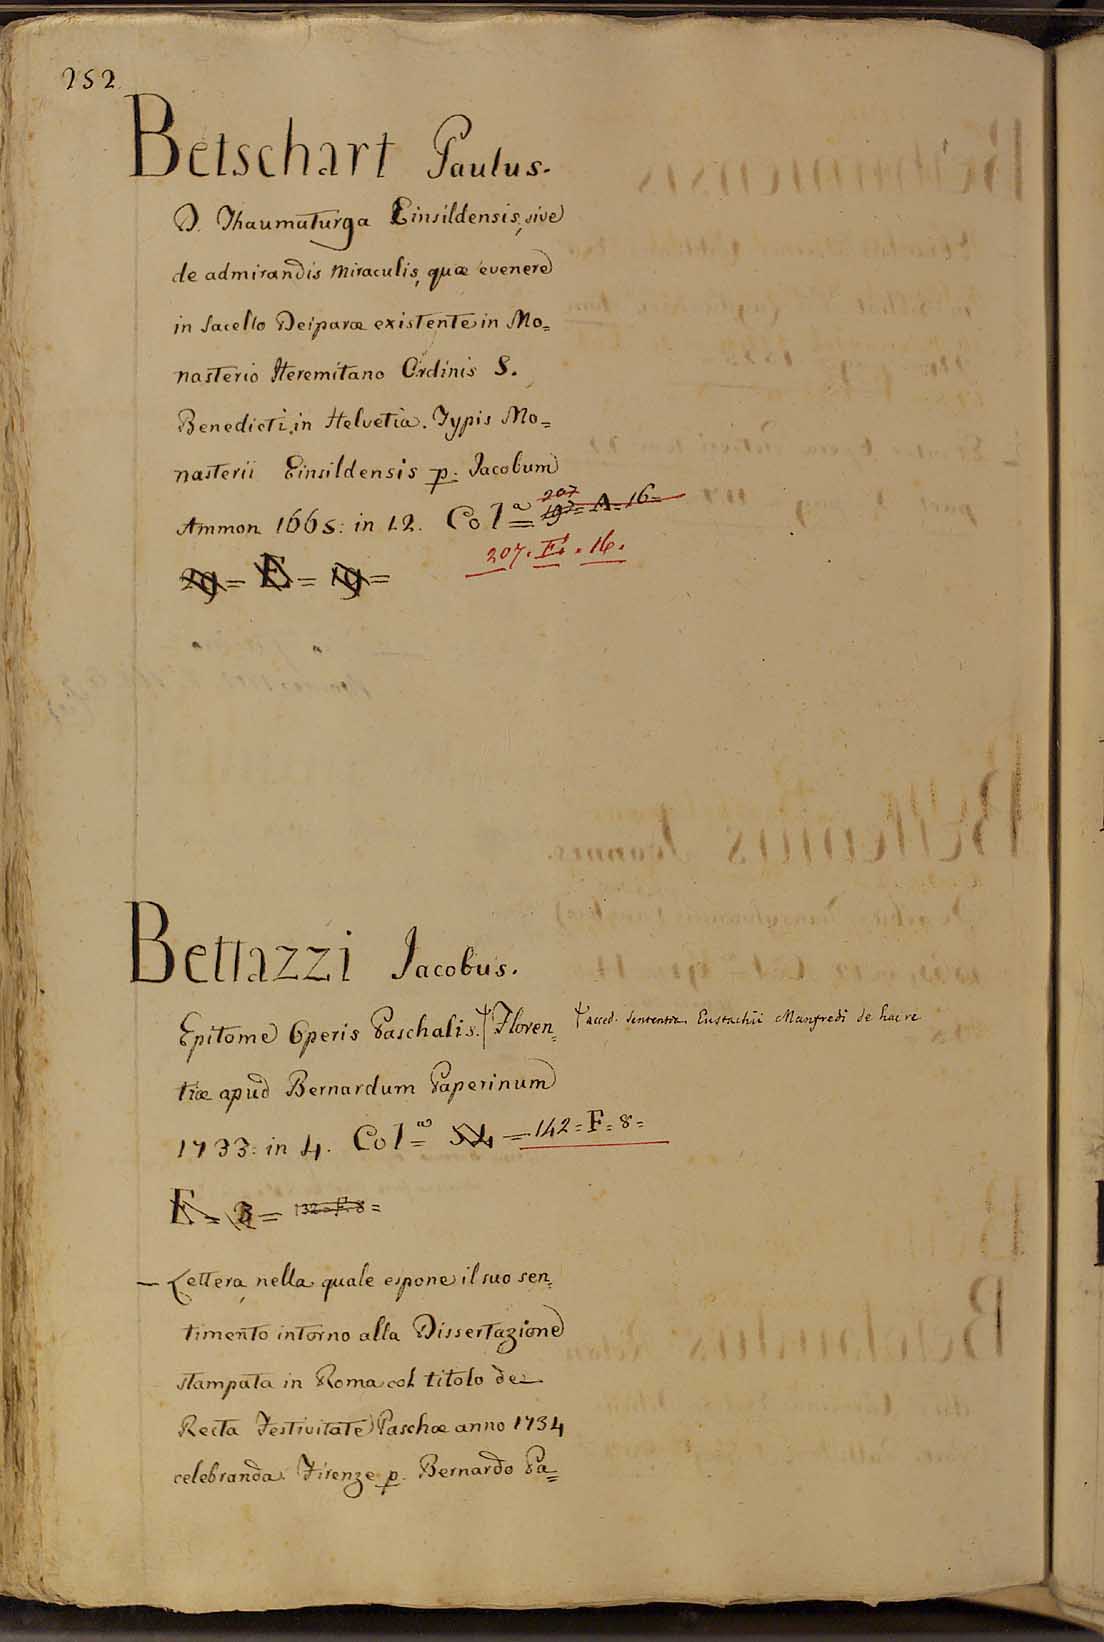 252
Betschart Paulus.
D. Thaumaturga Einsildensis, sive
de admirandis Miraculis, quæ evenere
in Sacello Deiparæ existente in Mo=
nasterio Heremitano Ordinis S.
Benedicti in Helvetia. Typis Mo=
nasterii Einsildensis p. Jacobum
Ammon 1665: in 12. Col.ª = 207 197 = A = 16 =
207. E. 16.
29 = E = 19 =
Bettazzi Jacobus.
Epitome Operis Paschalis. † Floren= † acced. sententia Eustachii Manfredi de hac re
tiæ apud Bernardum Paperinum
1733: in 4. Col.ª 54 = 142 = F = 8 =
E = 3 = 132 = F. 8 =
— Lettera nella quale espone il suo sen=
timento intorno alla Dissertazione
stampata in Roma col titolo de
Recta Festivitate Paschæ anno 1734
celebranda. Firenze p. Bernardo Pa=